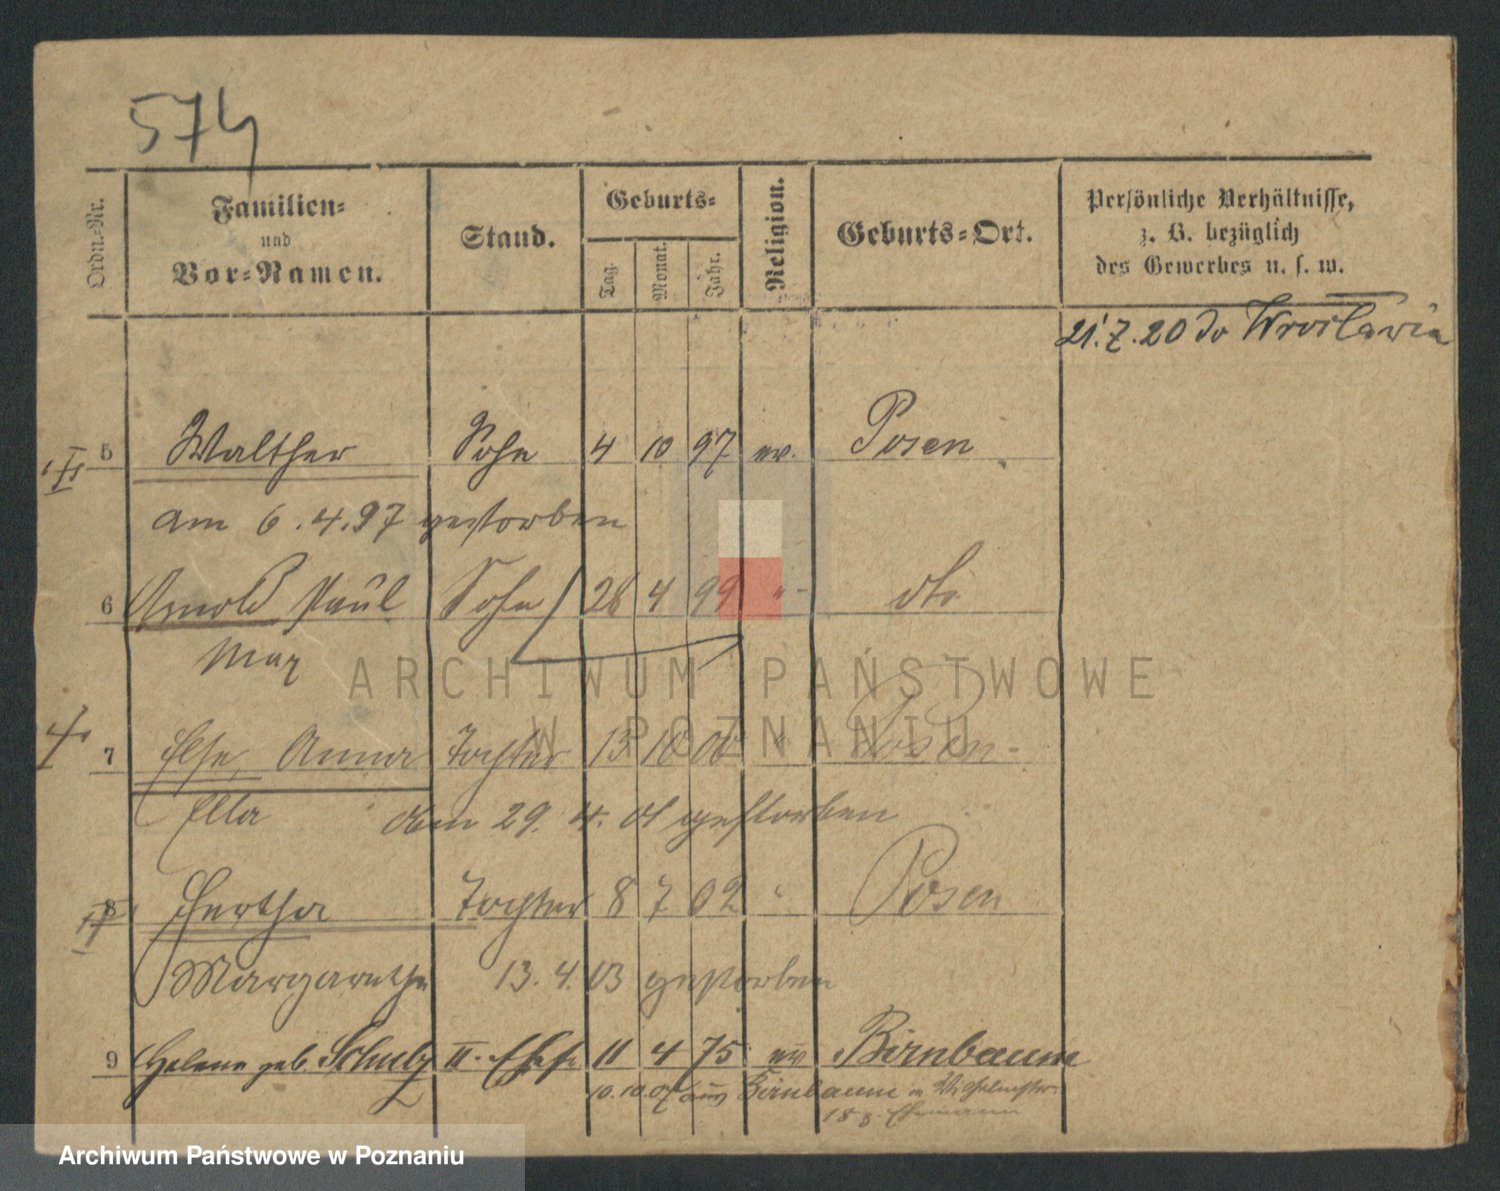 574
Ordn.-Nr.
Familien-
und
Vor-Namen.
Stand.
Geburts-
Tag.
Monat.
Jahr.
Religion.
Geburts-Ort.
Persönliche Verhältnisse,
z. B. bezüglich
des Gewerbes u. s. w.
21.7.20 do Wrocławia
5 Walther Sohn 4 10 97 ev. Posen
am 6.4.97 gestorben
6 Arnold Paul Sohn 28 4 99 " dto
Max
7 Else, Anna Tochter 13 10 00 " Posen
Ella am 29. 4. 01 gestorben
8 Hertha Tochter 8 7 02 " Posen
Margarethe 13.4.03 gestorben
9 Helene geb. Schulz II. Ehefr. 11 4 75 ev Birnbaum
10.10.07 aus Birnbaum
18 z. Ehemann
ARCHIWUM PAŃSTWOWE
W POZNANIU
Archiwum Państwowe w Poznaniu